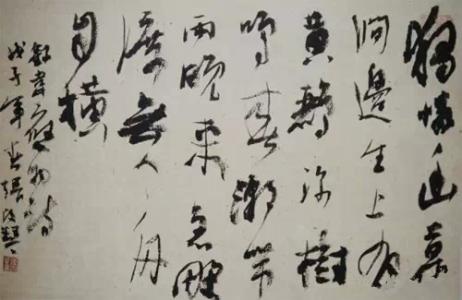 獨憐幽草
澗邊生上有
黄鸝深樹
鳴春潮帶
雨晚來急野
渡無人舟
自橫
韋應物詩
戊子年春